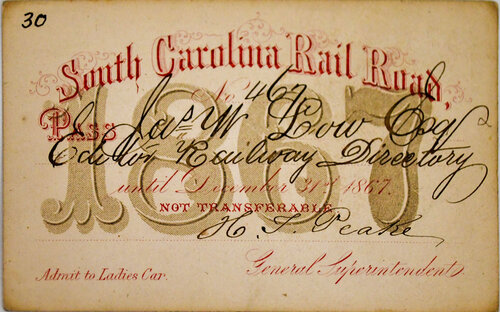 30
South Carolina Rail Road,
No 467
Pass Jas W Low Esq
Editor Railway Directory
1867
until December 31st 1867.
NOT TRANSFERABLE
H. T. Peake
General Superintendent.
Admit to Ladies Car.